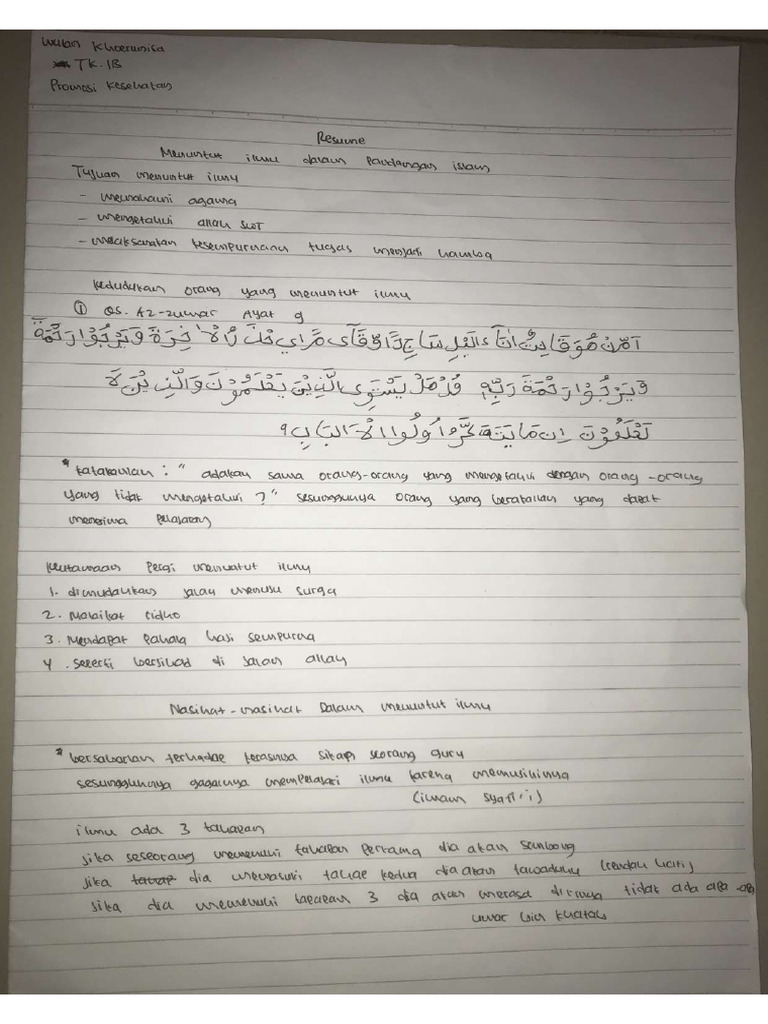 Wulan Khoerunisa
TK.1B
Promosi kesehatan
Resume
Menuntut ilmu dalam Pandangan islam
Tujuan menuntut ilmu
- memahami agama
- mengetahui allah SWT
- melaksanakan kesempurnaan tugas menjadi hamba
kedudukan orang yang menuntut ilmu
① QS. AZ-zumar Ayat 9
اَمَّنْ هُوَ قَانِتٌ اٰنَاۤءَ الَّيْلِ سَاجِدًا وَّقَاۤىِٕمًا الْاٰخِرَةَ وَيَرْجُوْا رَحْمَةَ
وَيَرْجُوْا رَحْمَةَ رَبِّهٖ قُلْ هَلْ يَسْتَوِى الَّذِيْنَ يَعْلَمُوْنَ وَالَّذِيْنَ لَا
يَعْلَمُوْنَ اِنَّمَا يَتَذَكَّرُ اُولُوا الْاَلْبَابِ ٩
* katakanlah : " adakah sama orang-orang yang mengetahui dengan orang-orang
yang tidak mengetahui ? " sesungguhnya orang yang berakallah yang dapat
menerima pelajaran
keutamaan Pergi menuntut ilmu
1. dimudahkan jalan menuju surga
2. Malaikat ridho
3. Mendapat pahala haji sempurna
4. seperti berjihad di jalan allah
Nasihat-nasihat Dalam menuntut ilmu
* bersabarlah terhadap kerasnya sikap seorang guru
sesungguhnya gagalnya mempelajari ilmu karena memusuhinya
(imam syafi'i)
ilmu ada 3 tahapan
jika seseorang memenuhi tahapan pertama dia akan sombong
jika dia memasuki tahap kedua dia akan tawadhu (rendah hati)
jika dia memenuhi tahapan 3 dia akan merasa dirinya tidak ada apa-apa
umar bin Khatab